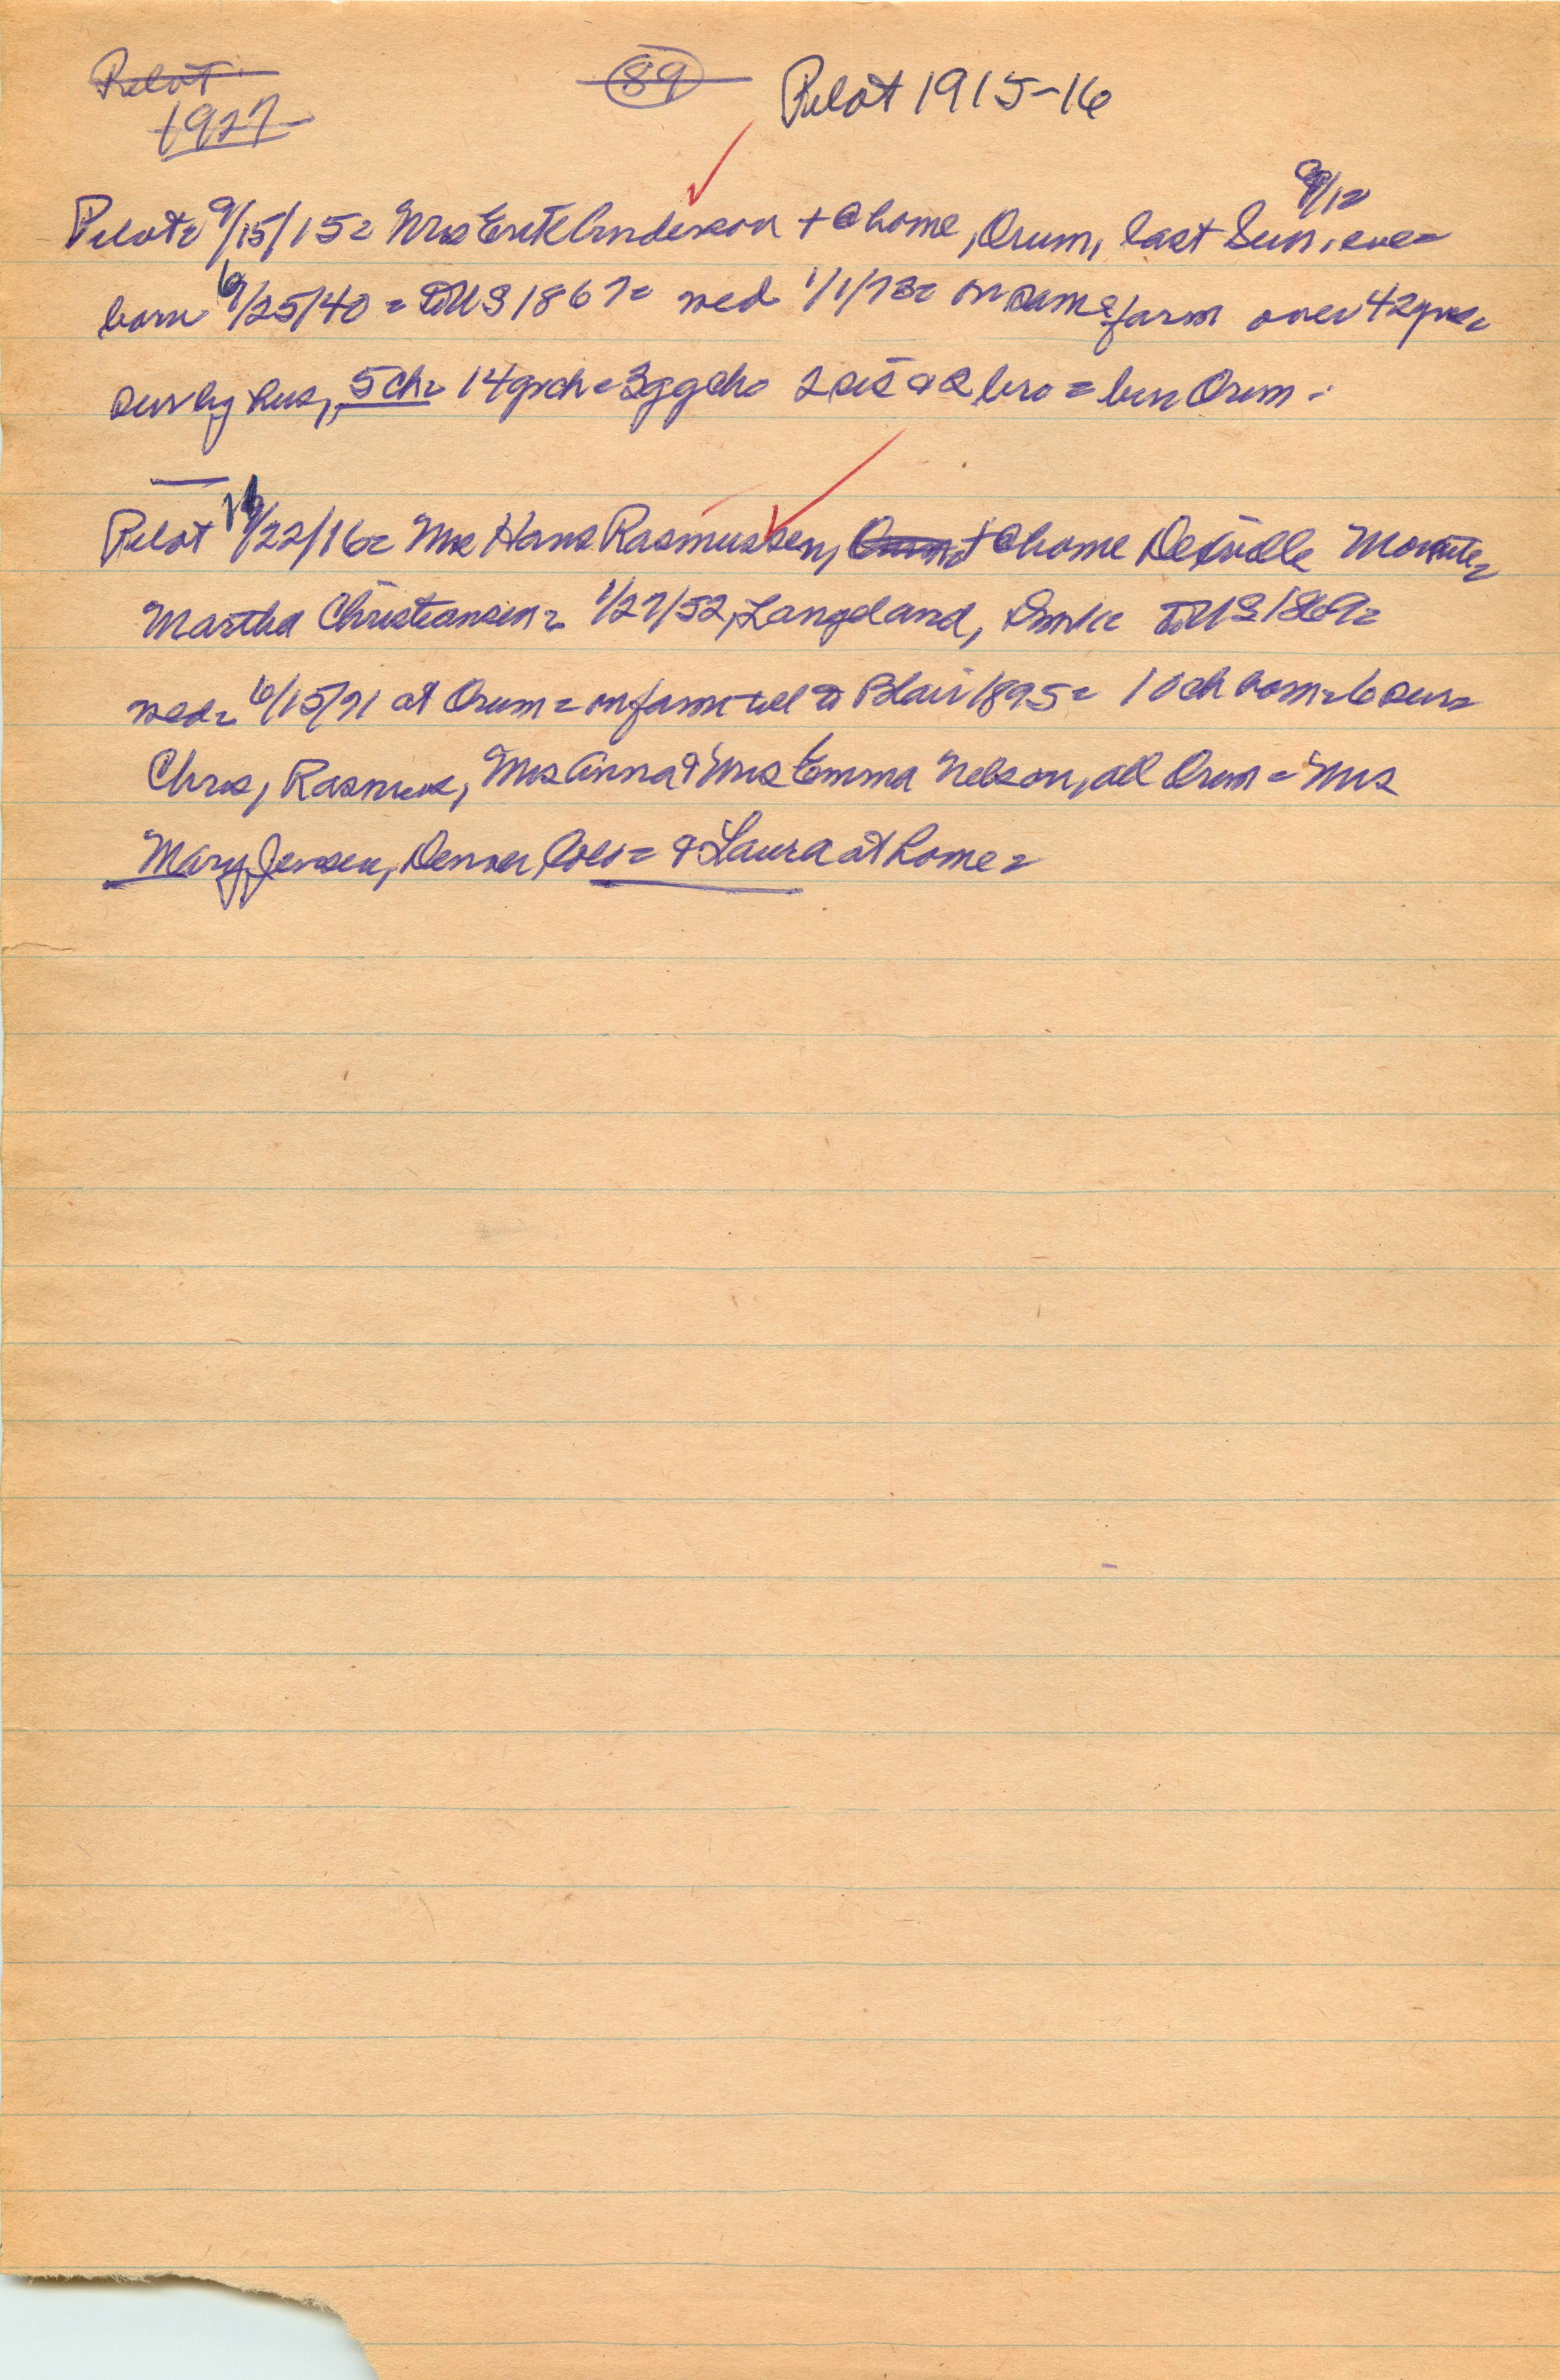 Pilot
1927
89
Pilot 1915-16
9/12
Pilot = 9/15/15 = Mrs Erik Anderson + @ home, Orum, last Sun, eve =
born 6/25/40 = to US 1867 = wed 1/1/73 = on same farm over 42 yrs =
surv by hus, 5 ch = 14 grch = 3 ggch = 2 sis & 2 bro = bur Orum -
Pilot /22/16 = Mrs Hans Rasmussen, + @ home Dexville
Martha Christiansen = 1/27/52, Langeland, to US 1869 =
wed = 6/15/71 at Orum = on farm till to Blair 1895 = 10 ch born = 6 surv =
Chris, Rasmus, Mrs Anna & Mrs Emma Nelson, all Orum = Mrs
Mary Jensen, Denver Colo = & Laura at home =